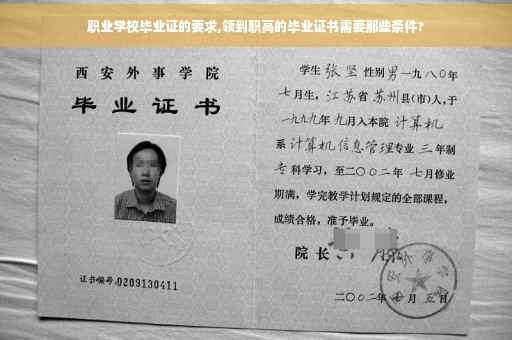 职业学校毕业证的要求,领到职高的毕业证书需要那些条件?
西安外事学院
毕业证书
证书编号:0209130411
学生 张坚 性别 男 一九八〇年
七月生，江苏省 苏州县(市)人，于
一九九九年 九月入本院 计算机
系 计算机信息管理专业 三 年制
专 科学习，至二〇〇二年 七月修业
期满，学完教学计划规定的全部课程，
成绩合格，准予毕业。
院长
二〇〇二年 七 月 五 日